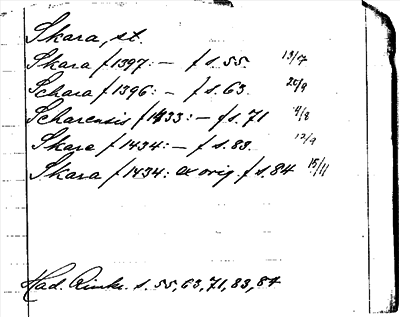 Skara, st.
Skara f 1397: — f s. 55. 13/7
Schara f 1396: — f s. 63. 20/9
Scharensis f 1433: — f s. 71 4/8
Skara f 1434: — f s. 83. 12/9
Skara f 1434: ex orig. f s. 84 15/11
Had. s. 55, 63, 71, 83, 84